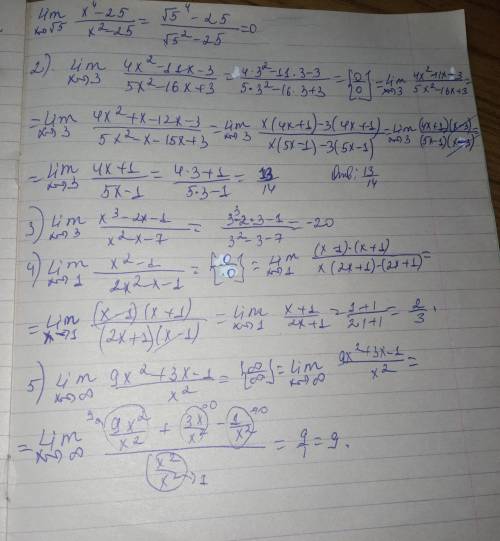 lim x→√5 (x⁴-25)/(x²-25) = (√5⁴-25)/(√5²-25) = 0
2) lim x→3 (4x²-11x-3)/(5x²-16x+3) = (4·3²-11·3-3)/(5·3²-16·3+3) = [0/0] = lim x→3 (4x²-11x-3)/(5x²-16x+3) =
= lim x→3 (4x²+x-12x-3)/(5x²-x-15x+3) = lim x→3 (x(4x+1)-3(4x+1))/(x(5x-1)-3(5x-1)) = lim x→3 ((4x+1)(x-3))/((5x-1)(x-3)) =
= lim x→3 (4x+1)/(5x-1) = (4·3+1)/(5·3-1) = 13/14 Отв: 13/14
3) lim x→3 (x³-2x-1)/(x²-x-7) = (3³-2·3-1)/(3²-3-7) = -20
4) lim x→1 (x²-1)/(2x²-x-1) = [0/0] = lim x→1 ((x-1)·(x+1))/(x(2x+1)-(2x+1)) =
= lim x→1 ((x-1)(x+1))/((2x+1)(x-1)) = lim x→1 (x+1)/(2x+1) = (1+1)/(2·1+1) = 2/3.
5) lim x→∞ (9x²+3x-1)/x² = [∞/∞] = lim x→∞ (9x²+3x-1)/x² =
= lim x→∞ (9x²/x² + 3x/x² - 1/x²)/(x²/x²) = 9/1 = 9.